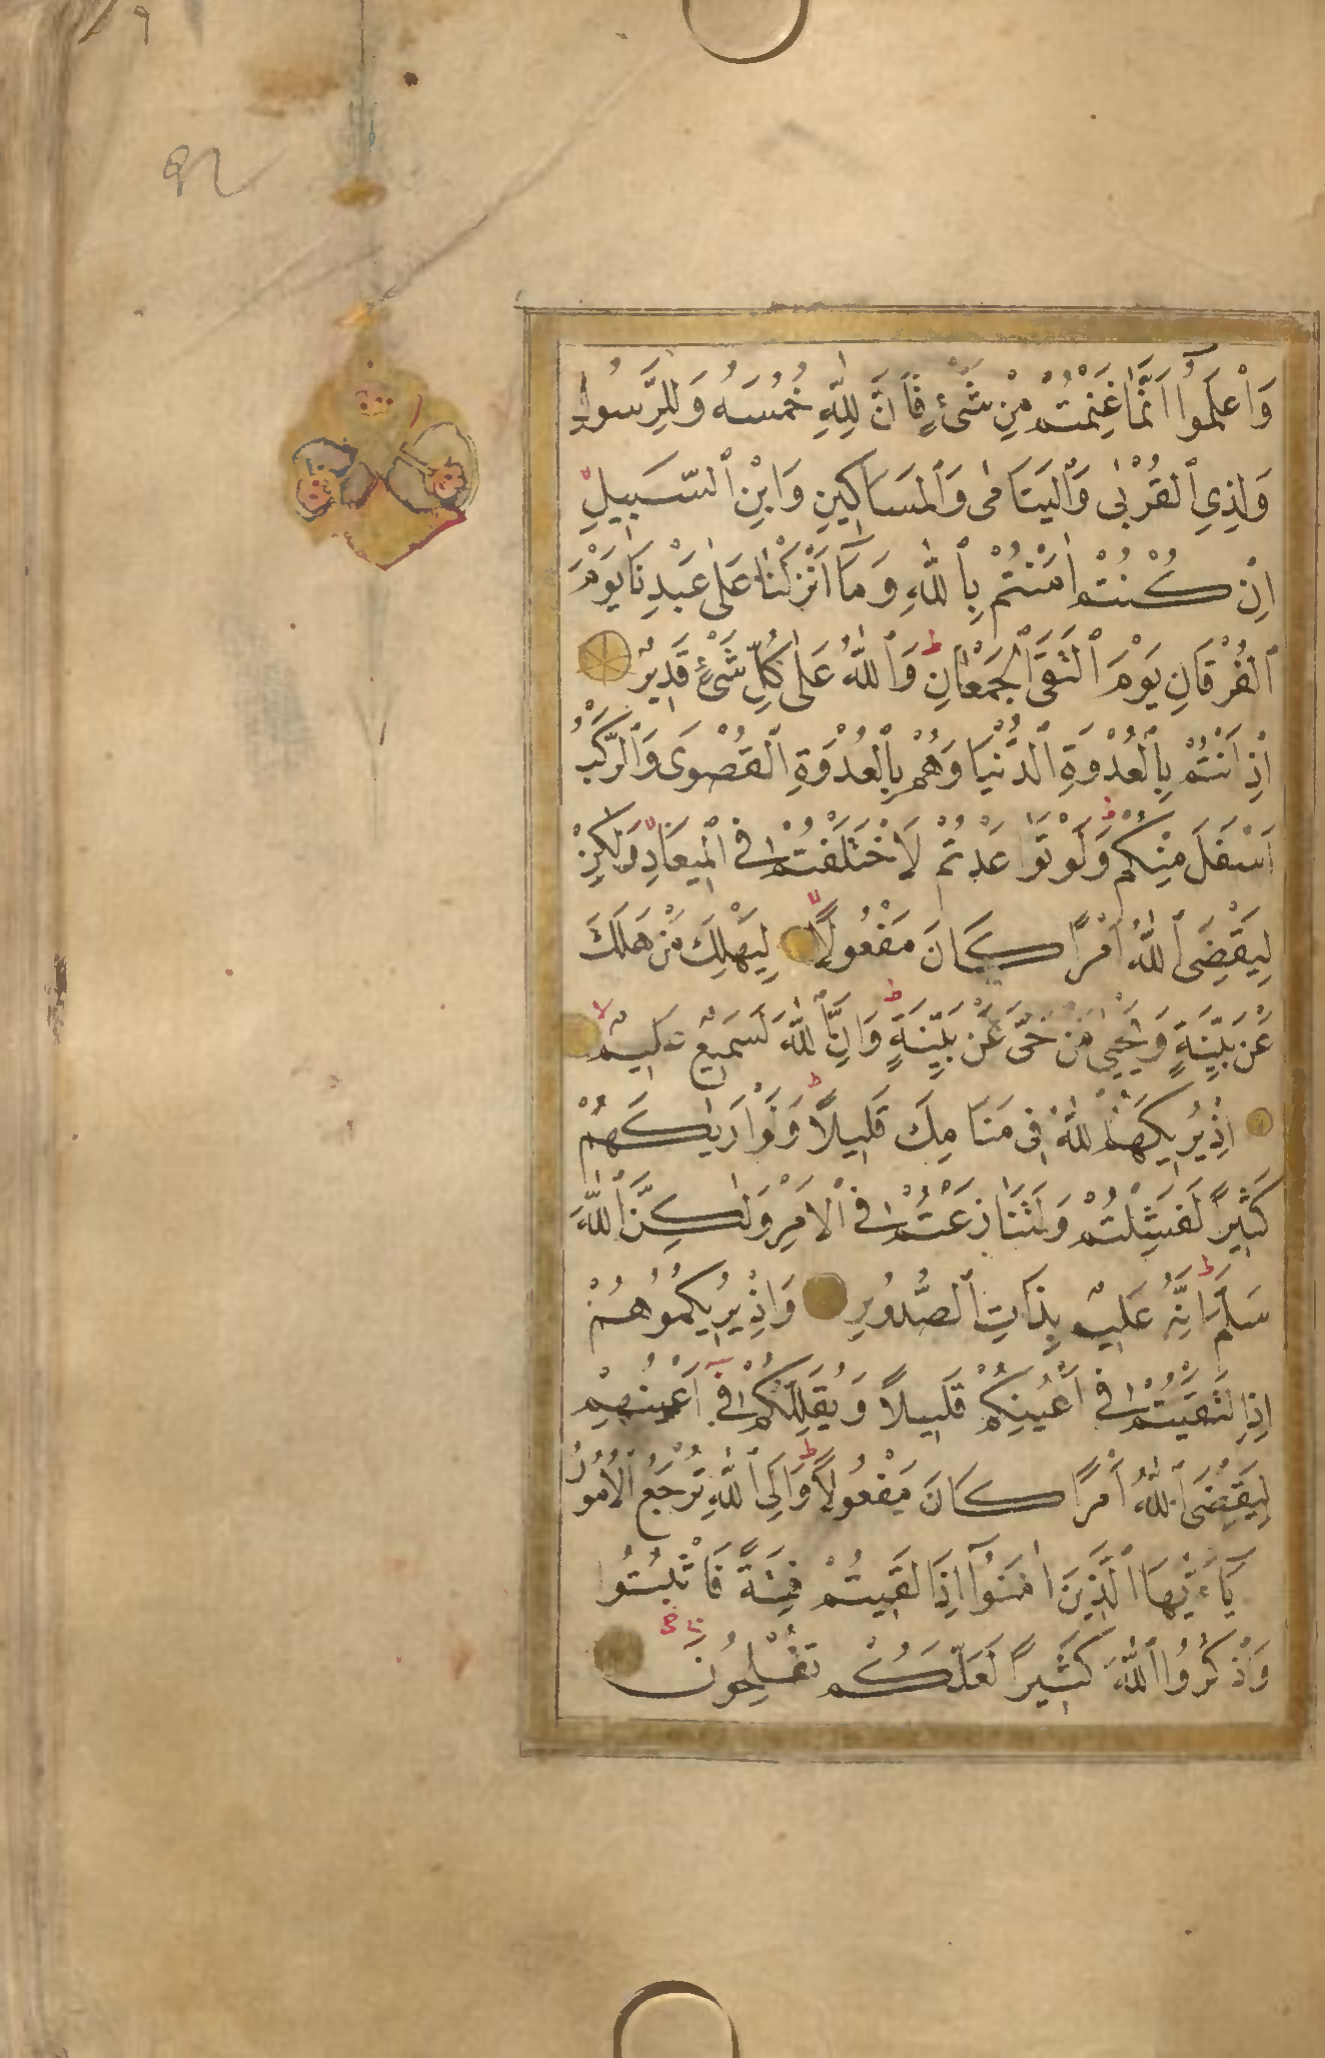 وَاعْلَمُوا اَنَّمَا غَنِمْتُمْ مِنْ شَیْءٍ فَاَنَّ لِلّٰهِ خُمُسَهُ وَلِلرَّسُولِ
وَلِذِي ٱلْقُرْبٰى وَٱلْيَتَامٰى وَٱلْمَسَاكِينِ وَابْنِ ٱلسَّبِيلِ
اِنْ كُنْتُمْ اٰمَنْتُمْ بِٱللّٰهِ وَمَآ اَنْزَلْنَا عَلٰى عَبْدِنَا يَوْمَ
ٱلْفُرْقَانِ يَوْمَ ٱلْتَقَى ٱلْجَمْعَانِ ط وَٱللّٰهُ عَلٰى كُلِّ شَیْءٍ قَدِيرٌ
اِذْ اَنْتُمْ بِٱلْعُدْوَةِ ٱلدُّنْيَا وَهُمْ بِٱلْعُدْوَةِ ٱلْقُصْوَى وَٱلرَّكْبُ
اَسْفَلَ مِنْكُمْ ط وَلَوْ تَوَاعَدْتُمْ لَاخْتَلَفْتُمْ فِى ٱلْمِيعَادِ وَلٰكِنْ
لِيَقْضِىَ ٱللّٰهُ اَمْرًا كَانَ مَفْعُولًا لِيَهْلِكَ مَنْ هَلَكَ
عَنْ بَيِّنَةٍ وَيَحْيٰى مَنْ حَىَّ عَنْ بَيِّنَةٍ ط وَاِنَّ ٱللّٰهَ لَسَمِيعٌ عَلِيمٌ لا
اِذْ يُرِيكَهُمُ ٱللّٰهُ فِى مَنَامِكَ قَلِيلًا ط وَلَوْ اَرٰيكَهُمْ
كَثِيرًا لَفَشِلْتُمْ وَلَتَنَازَعْتُمْ فِى ٱلْاَمْرِ وَلٰكِنَّ ٱللّٰهَ
سَلَّمَ ط اِنَّهُ عَلِيمٌ بِذَاتِ ٱلصُّدُورِ وَاِذْ يُرِيكُمُوهُمْ
اِذِ الْتَقَيْتُمْ فِى اَعْيُنِكُمْ قَلِيلًا وَيُقَلِّلُكُمْ فِىٓ اَعْيُنِهِمْ
لِيَقْضِىَ ٱللّٰهُ اَمْرًا كَانَ مَفْعُولًا ط وَاِلَى ٱللّٰهِ تُرْجَعُ ٱلْاُمُورُ
يَآءَيُّهَا ٱلَّذِينَ اٰمَنُوٓا اِذَا لَقِيتُمْ فِئَةً فَاثْبُتُوا
وَاذْكُرُوا ٱللّٰهَ كَثِيرًا لَعَلَّكُمْ تُفْلِحُونَ